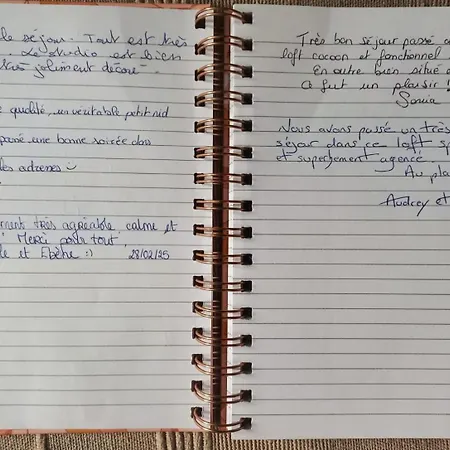 le séjour. Tout est très
. Le studio est bien
très joliment décoré.
e qualité, un véritable petit nid
passé une bonne soirée dans
les adresses
ment très agréable, calme et
! Merci pour tout,
le et Ebène :) 28/02/25
Très bon séjour passé
loft cocoon et fonctionnel
En outre bien situé
Ca fut un plaisir !
Sonia
Nous avons passé un très
séjour dans ce loft sp
et superbement agencé.
Au pla
Audrey et